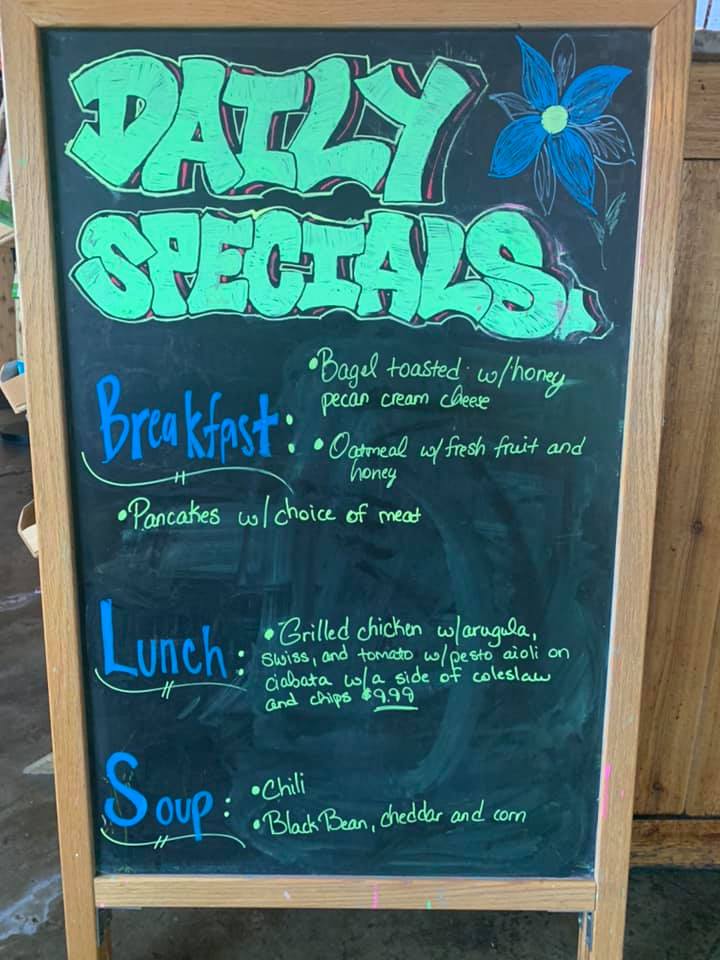 DAILY
SPECIALS.
Breakfast:
• Bagel toasted w/honey
pecan cream cheese
• Oatmeal w/fresh fruit and
honey
• Pancakes w/choice of meat
Lunch:
• Grilled chicken w/arugula,
swiss, and tomato w/pesto aioli on
ciabata w/a side of coleslaw
and chips $9.99
Soup:
• Chili
• Black Bean, cheddar and corn